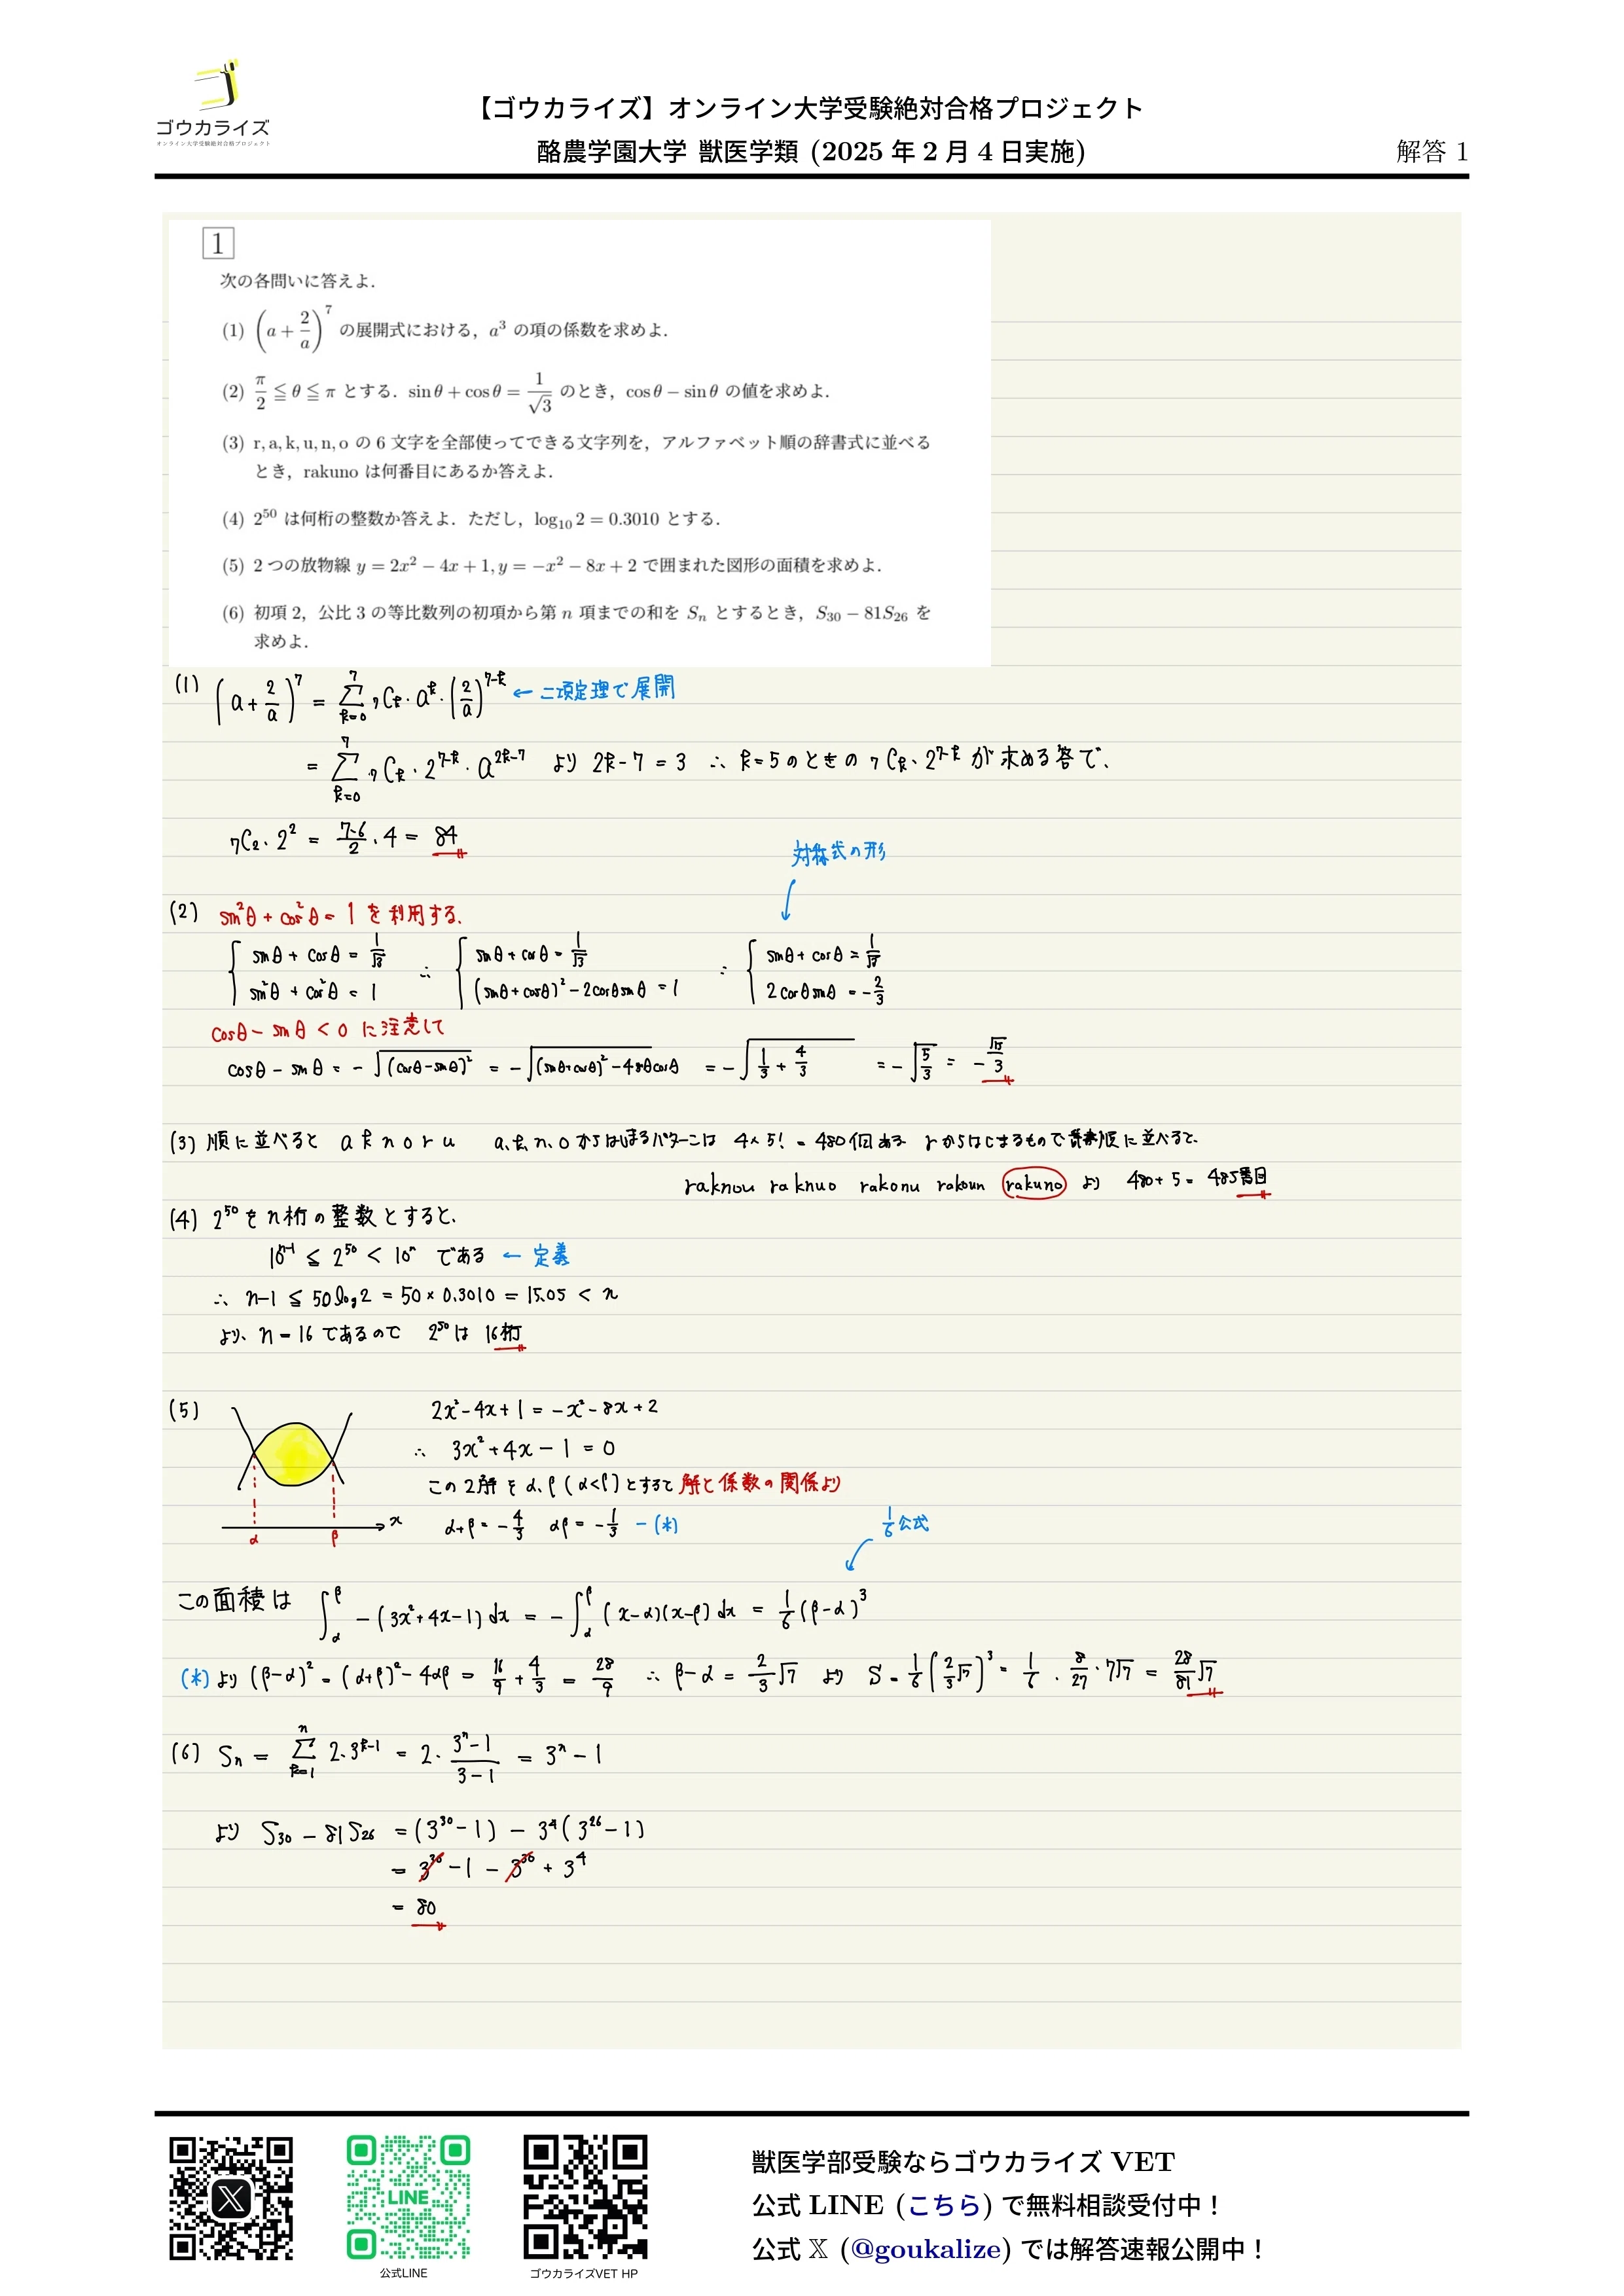 ゴウカライズ
オンライン大学受験絶対合格プロジェクト
【ゴウカライズ】オンライン大学受験絶対合格プロジェクト
酪農学園大学 獣医学類 (2025 年 2 月 4 日実施)
解答 1
1
次の各問いに答えよ.
(1) (a + 2/a)^7 の展開式における, a^3 の項の係数を求めよ.
(2) π/2 ≦ θ ≦ π とする. sin θ + cos θ = 1/√3 のとき, cos θ − sin θ の値を求めよ.
(3) r, a, k, u, n, o の 6 文字を全部使ってできる文字列を, アルファベット順の辞書式に並べる
とき, rakuno は何番目にあるか答えよ.
(4) 2^50 は何桁の整数か答えよ. ただし, log_10 2 = 0.3010 とする.
(5) 2 つの放物線 y = 2x^2 − 4x + 1, y = −x^2 − 8x + 2 で囲まれた図形の面積を求めよ.
(6) 初項 2, 公比 3 の等比数列の初項から第 n 項までの和を S_n とするとき, S_30 − 81S_26 を
求めよ.
(1) (a + 2/a)^7 = Σ_{k=0}^{7} 7Ck・a^k・(2/a)^{7-k} ← 二項定理で展開
= Σ_{k=0}^{7} 7Ck・2^{7-k}・a^{2k-7} より 2k − 7 = 3 ∴ k = 5 のときの 7Ck・2^{7-k} が求める答で、
7C2・2^2 = 7・6/2・4 = 84
対称式の形
(2) sin^2θ + cos^2θ = 1 を利用する.
{ sinθ + cosθ = 1/√3 ∴ { sinθ + cosθ = 1/√3 ∴ { sinθ + cosθ = 1/√3
sin^2θ + cos^2θ = 1 (sinθ + cosθ)^2 − 2cosθsinθ = 1 2cosθsinθ = −2/3
cosθ − sinθ < 0 に注意して
cosθ − sinθ = −√(cosθ−sinθ)^2 = −√(sinθ+cosθ)^2−4sinθcosθ = −√1/3 + 4/3 = −√5/3 = −√15/3
(3) 順に並べると a k n o r u a, k, n, o からはじまるパターンは 4×5! = 480個ある rからはじまるもので辞書順に並べると、
raknou raknuo rakonu rakoun rakuno より 480 + 5 = 485番目
(4) 2^50 を n桁の整数とすると、
10^{n-1} ≤ 2^50 < 10^n である ← 定義
∴ n−1 ≦ 50log2 = 50 × 0.3010 = 15.05 < n
より、n = 16 であるので 2^50 は 16桁
(5) 2x^2 − 4x + 1 = −x^2 − 8x + 2
∴ 3x^2 + 4x − 1 = 0
この2解を α, β (α<β) とすると 解と係数の関係より
α+β = −4/3 αβ = −1/3 − (*)
x
α β
1/6公式
この面積は ∫_α^β −(3x^2+4x−1) dx = −∫_α^β (x−α)(x−β) dx = 1/6(β−α)^3
(*) より (β−α)^2 = (α+β)^2 − 4αβ = 16/9 + 4/3 = 28/9 ∴ β − α = 2/3√7 より S = 1/6(2/3√7)^3 = 1/6・8/27・7√7 = 28/81√7
(6) Sn = Σ_{k=1}^{n} 2・3^{k-1} = 2・(3^n−1)/(3−1) = 3^n − 1
より S30 − 81S26 = (3^30 − 1) − 3^4(3^26 − 1)
= 3^30 − 1 − 3^30 + 3^4
= 80
LINE
公式LINE
ゴウカライズVET HP
獣医学部受験ならゴウカライズ VET
公式 LINE (こちら) で無料相談受付中！
公式 𝕏 (@goukalize) では解答速報公開中！